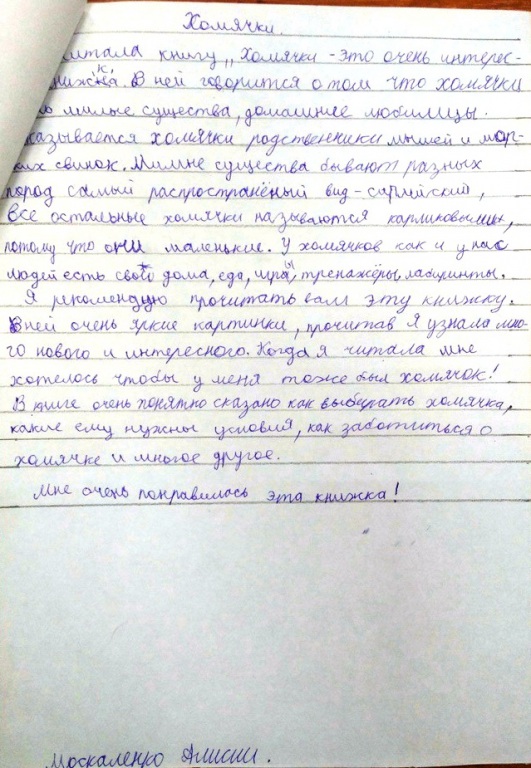 Хомячки.
читала книгу „Хомячки - это очень интерес-
нижка. В ней говорится о том что хомячки
милые существа, домашнее любимцы.
казывается хомячки родственники мышей и мор-
ких свинок. Милые существа бывают разных
пород самый распространёный вид - сирийский,
все остальные хомячки называются карликовыми,
потому что они маленькие. У хомячков как и у нас
людей есть свои дома, еда, игры, тренажёры, лабиринты.
Я рекомендую прочитать вам эту книжку.
В ней очень яркие картинки, прочитав я узнала мно-
го нового и интересного. Когда я читала мне
хотелось чтобы у меня тоже был хомячок!
В книге очень понятно сказано как выбирать хомячка,
какие ему нужны условия, как заботиться о
хомячке и многое другое.
Мне очень понравилась эта книжка!
Москаленко Алисии.